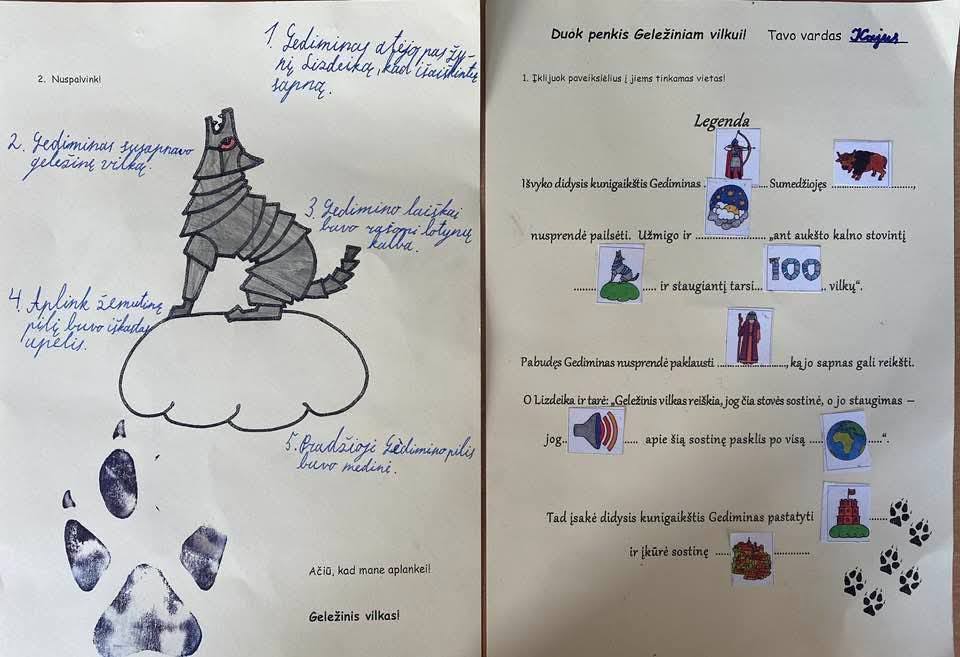 2. Nuspalvink!
1. Gediminas atėjo pas žy-
nį Lizdeiką, kad išaiškintų
sapną.
2. Gediminas susapnavo
geležinę vilką.
3. Gedimino laiškai
buvo rašomi lotynų
kalba.
4. Aplink žemutinę
pilį buvo iškastas
upelis.
5. Pradžioji Gedimino pilis
buvo medinė.
Ačiū, kad mane aplankei!
Geležinis vilkas!
Duok penkis Geležiniam vilkui! Tavo vardas Kajus
1. Įklijuok paveikslėlius į jiems tinkamas vietas!
Legenda
Išvyko didysis kunigaikštis Gediminas . .... Sumedžiojęs ..................,
nusprendė pailsėti. Užmigo ir .................. „ant aukšto kalno stovintį
...... .... ir staugiantį tarsi... 100 .. vilkų“.
Pabudęs Gediminas nusprendė paklausti .................., ką jo sapnas gali reikšti.
O Lizdeika ir tarė: „Geležinis vilkas reiškia, jog čia stovės sostinė, o jo staugimas –
jog.. .... apie šią sostinę pasklis po visą .... .....“.
Tad įsakė didysis kunigaikštis Gediminas pastatyti .....
ir įkūrė sostinę .... ..........